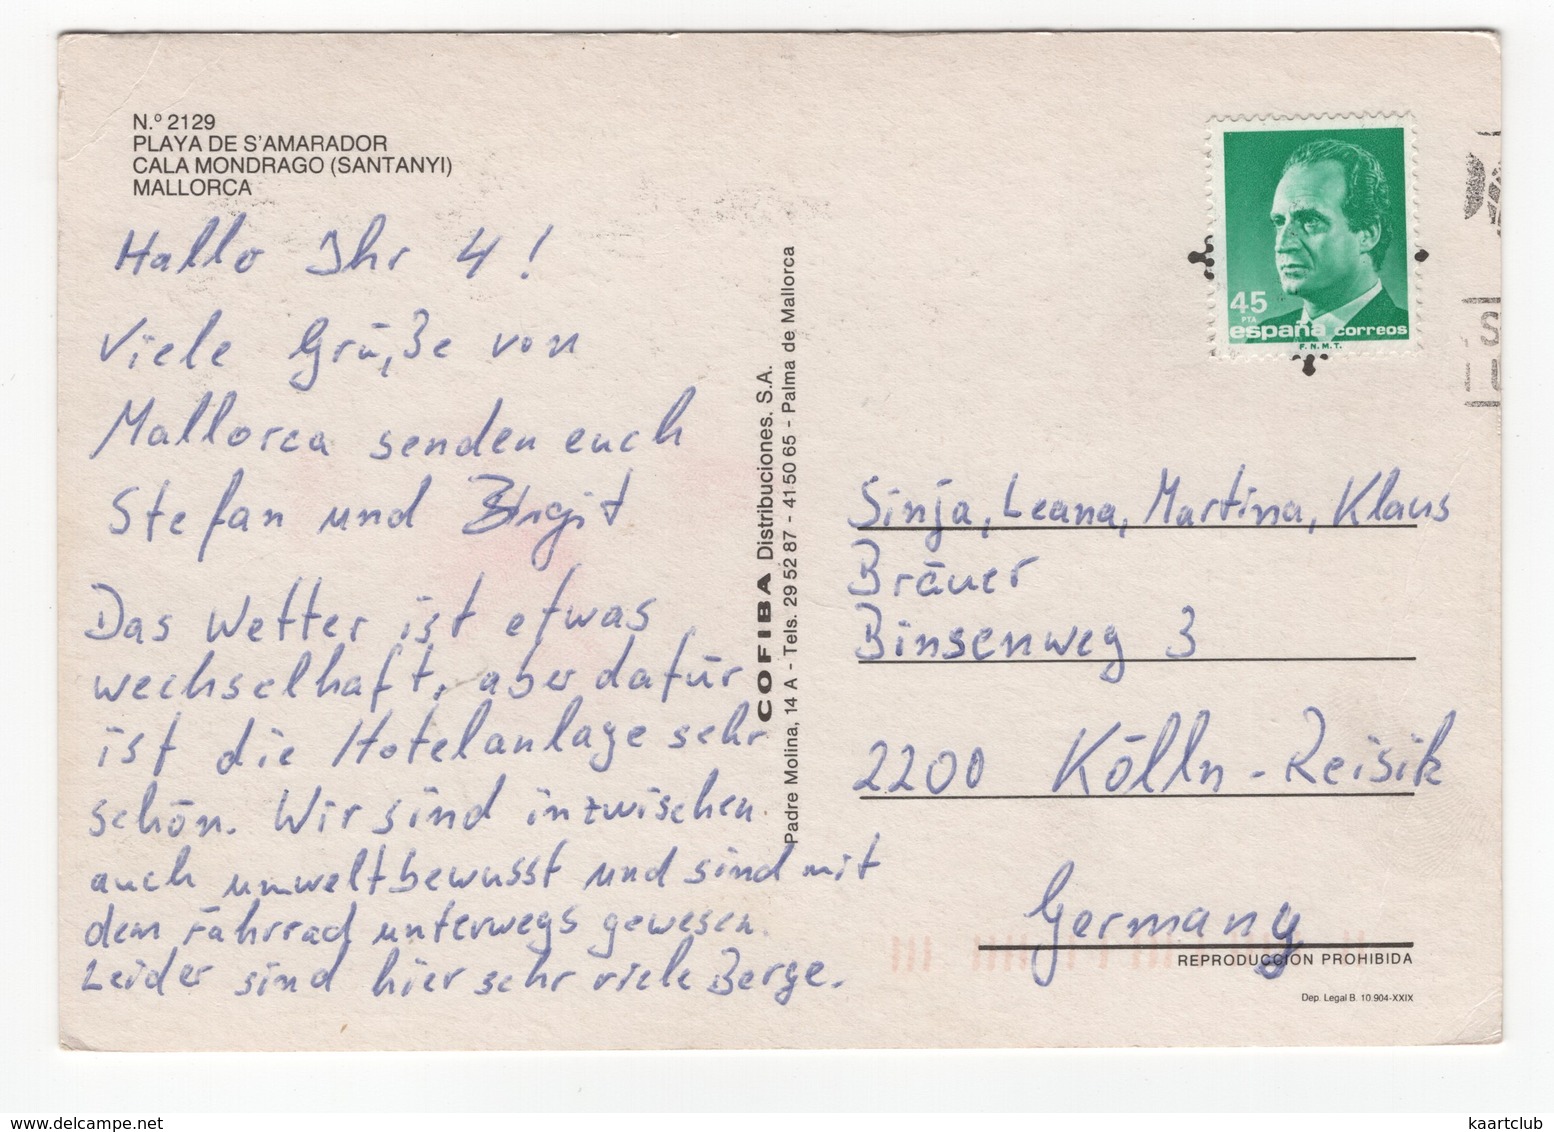 N.º 2129
PLAYA DE S'AMARADOR
CALA MONDRAGO (SANTANYI)
MALLORCA
Hallo Ihr 4!
Viele Grüße von
Mallorca senden euch
Stefan und Birgit
Das Wetter ist etwas
wechselhaft, aber dafür
ist die Hotelanlage sehr
schön. Wir sind inzwischen
auch umweltbewusst und sind mit
dem Fahrrad unterwegs gewesen.
Leider sind hier sehr viele Berge.
COFIBA Distribuciones. S.A.
Padre Molina, 14 A - Tels. 29 52 87 - 41 50 65 - Palma de Mallorca
45
PTA
españa correos
F.N.M.T.
Sinja, Leana, Martina, Klaus
Bräuer
Binsenweg 3
2200 Kölln-Reisik
Germany
REPRODUCCION PROHIBIDA
Dep. Legal B. 10.904-XXIX
kaartclub